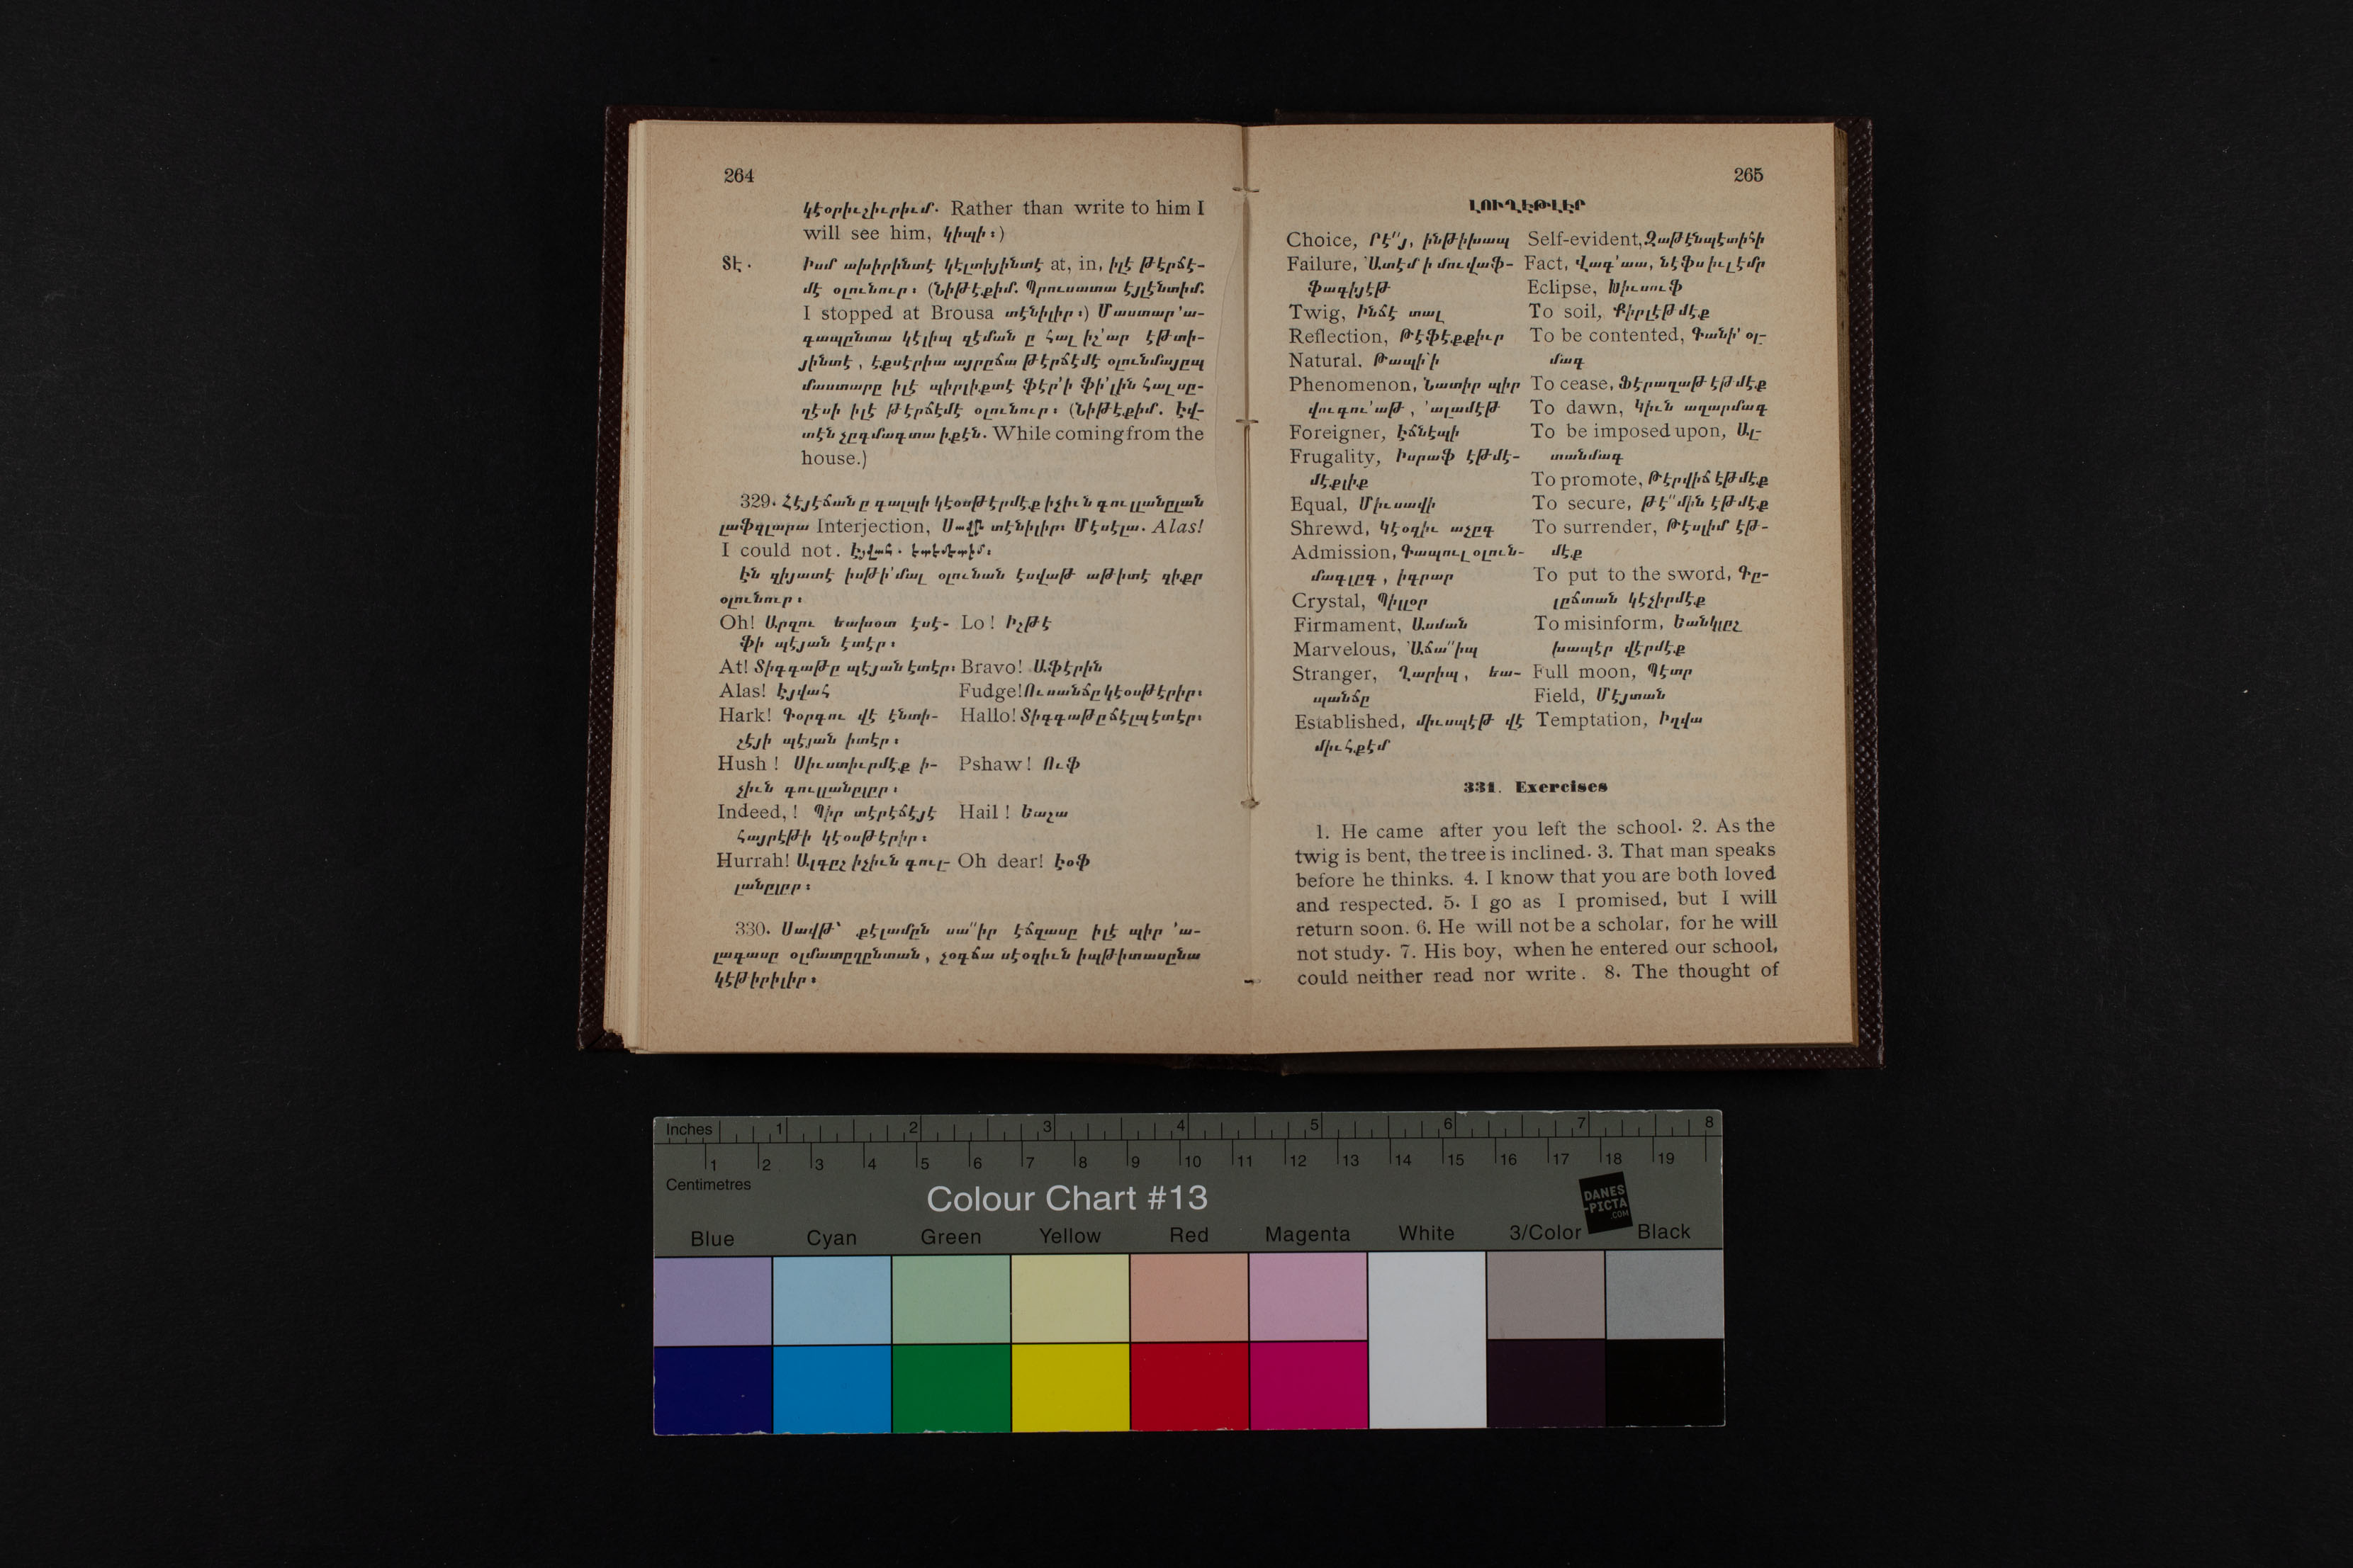 264
կէօրիւշիւրիւմ. Rather than write to him I
will see him, կիպի։)
Տէ. Իսմ ախիրինտէ կէլտիյինտէ at, in, իլէ թէրճէ-
մէ օլունուր։ (Նիթէքիմ. Պրուսատա էյլէնտիմ.
I stopped at Brousa տէնիլիր։) Մաստար 'ա-
գապընտա կէլիպ զէման ը հալ իշ'ար էթտի-
յինտէ, էքսէրիա այրըճա թէրճէմէ օլունմայըպ
մաստարը իլէ պիրլիքտէ ֆէր'ի ֆի'լին հալ սը-
ղէսի իլէ թէրճէմէ օլունուր։ (Նիթէքիմ. Էվ-
տէն չըգմագտա իքէն. While coming from the
house.)
329. Հէյէճան ը գալպի կէօսթէրմէք իչիւն գուլլանըլան
լաֆզլարա Interjection, տէնիլիր։ Մէսէլա. Alas!
I could not. Էյվահ.
էն զիյատէ իսթի'մալ օլունան էսվաթ աթիտէ զիքր
օլունուր։
Oh! Արզու եախօտ էսէ- Lo! Իշթէ
ֆի պէյան էտէր։
At! Տիգգաթը պէյան էտէր։ Bravo! Աֆէրին
Alas! Էյվահ Fudge! Ուսանճը կէօսթէրիր։
Hark! Գօրգու վէ էնտի- Hallo! Տիգգաթը ճէլպ էտէր։
շէյի պէյան իտէր։
Hush! Սիւստիւրմէք ի- Pshaw! Ուֆ
չիւն գուլլանըլըր։
Indeed,! Պիր տէրէճէյէ Hail! Եաշա
հայրէթի կէօսթէրիր։
Hurrah! Ալգըշ իչիւն գուլ- Oh dear! Էօֆ
լանըլըր։
330. Սավթ՝ քէլամըն սա՛՛իր էճզասը իլէ պիր 'ա-
լագասը օլմատըղընտան, չօգճա սէօզիւն իպթիտասընա
կէթիրիլիր։
265
ԼՈՒՂԷԹԼԷՐ
Choice, Րէ՛՛յ, ինթիխապ Self-evident, Զաթէնպէտիհի
Failure, 'Ատէմ ի մուվաֆ- Fact, Վագ'աա, նէֆս իւլ էմր
ֆագիյէթ Eclipse, Խիւսուֆ
Twig, Ինճէ տալ To soil, Քիրլէթմէք
Reflection, Թէֆէքքիւր To be contented, Գանի' օլ-
Natural. Թապի'ի մագ
Phenomenon, Նատիր պիր To cease, Ֆէրաղաթ էթմէք
վուգու'աթ, 'ալամէթ To dawn, Կիւն աղարմագ
Foreigner, Էճնէպի To be imposed upon, Ալ-
Frugality, Իսրաֆ էթմէ- տանմագ
մէքլիք To promote, Թէրվիճ էթմէք
Equal, Միւսավի To secure, Թէ՛՛մին էթմէք
Shrewd, Կէօզիւ աչըգ To surrender, Թէսլիմ էթ-
Admission, Գապուլ օլուն- մէք
մագլըգ, իգրար To put to the sword, Գը-
Crystal, Պիլլօր լըճտան կէչիրմէք
Firmament, Ասման To misinform, Եանկլըշ
Marvelous, 'Աճա՛՛իպ խապէր վէրմէք
Stranger, Ղարիպ, եա- Full moon, Պէտր
պանճը Field, Մէյտան
Established, միւսպէթ վէ Temptation, Իղվա
միւհքէմ
331. Exercises
1. He came after you left the school. 2. As the
twig is bent, the tree is inclined. 3. That man speaks
before he thinks. 4. I know that you are both loved
and respected. 5. I go as I promised, but I will
return soon. 6. He will not be a scholar, for he will
not study. 7. His boy, when he entered our school,
could neither read nor write. 8. The thought of
Inches 1 2 3 4 5 6 7 8
1 2 3 4 5 6 7 8 9 10 11 12 13 14 15 16 17 18 19
Centimetres
Colour Chart #13
DANES
-PICTA
.COM
Blue Cyan Green Yellow Red Magenta White 3/Color Black